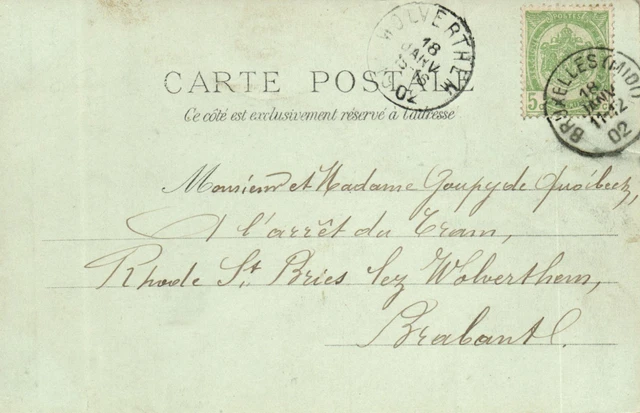 WOLVERTHEM
18
JANV
16
02
POSTES
5
BRUXELLES (MIDI)
18
JANV
11-12
02
CARTE POSTALE
Ce côté est exclusivement réservé à l'adresse
Monsieur et Madame Goupy de Quoibeek,
A l'arrêt du Tram,
Rhode St. Bries lez Wolverthem,
Brabant.